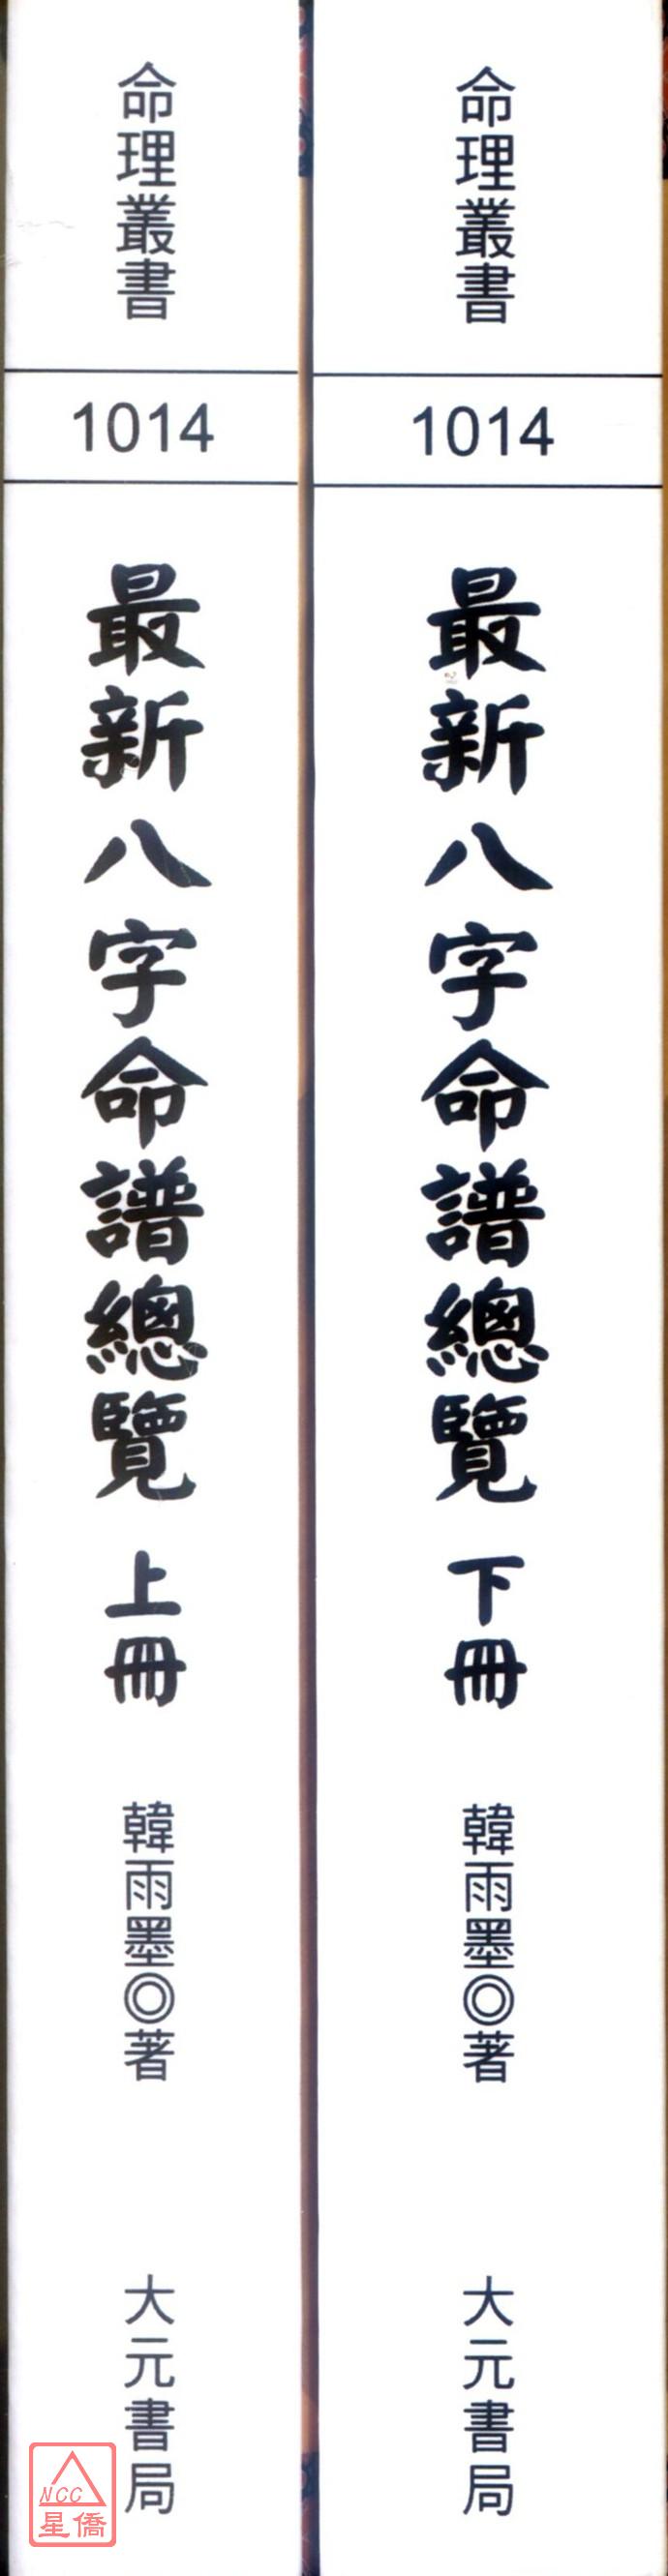 命理叢書
1014
最新八字命譜總覽 上冊
韓雨墨◎著
大元書局
NCC
星僑
命理叢書
1014
最新八字命譜總覽 下冊
韓雨墨◎著
大元書局